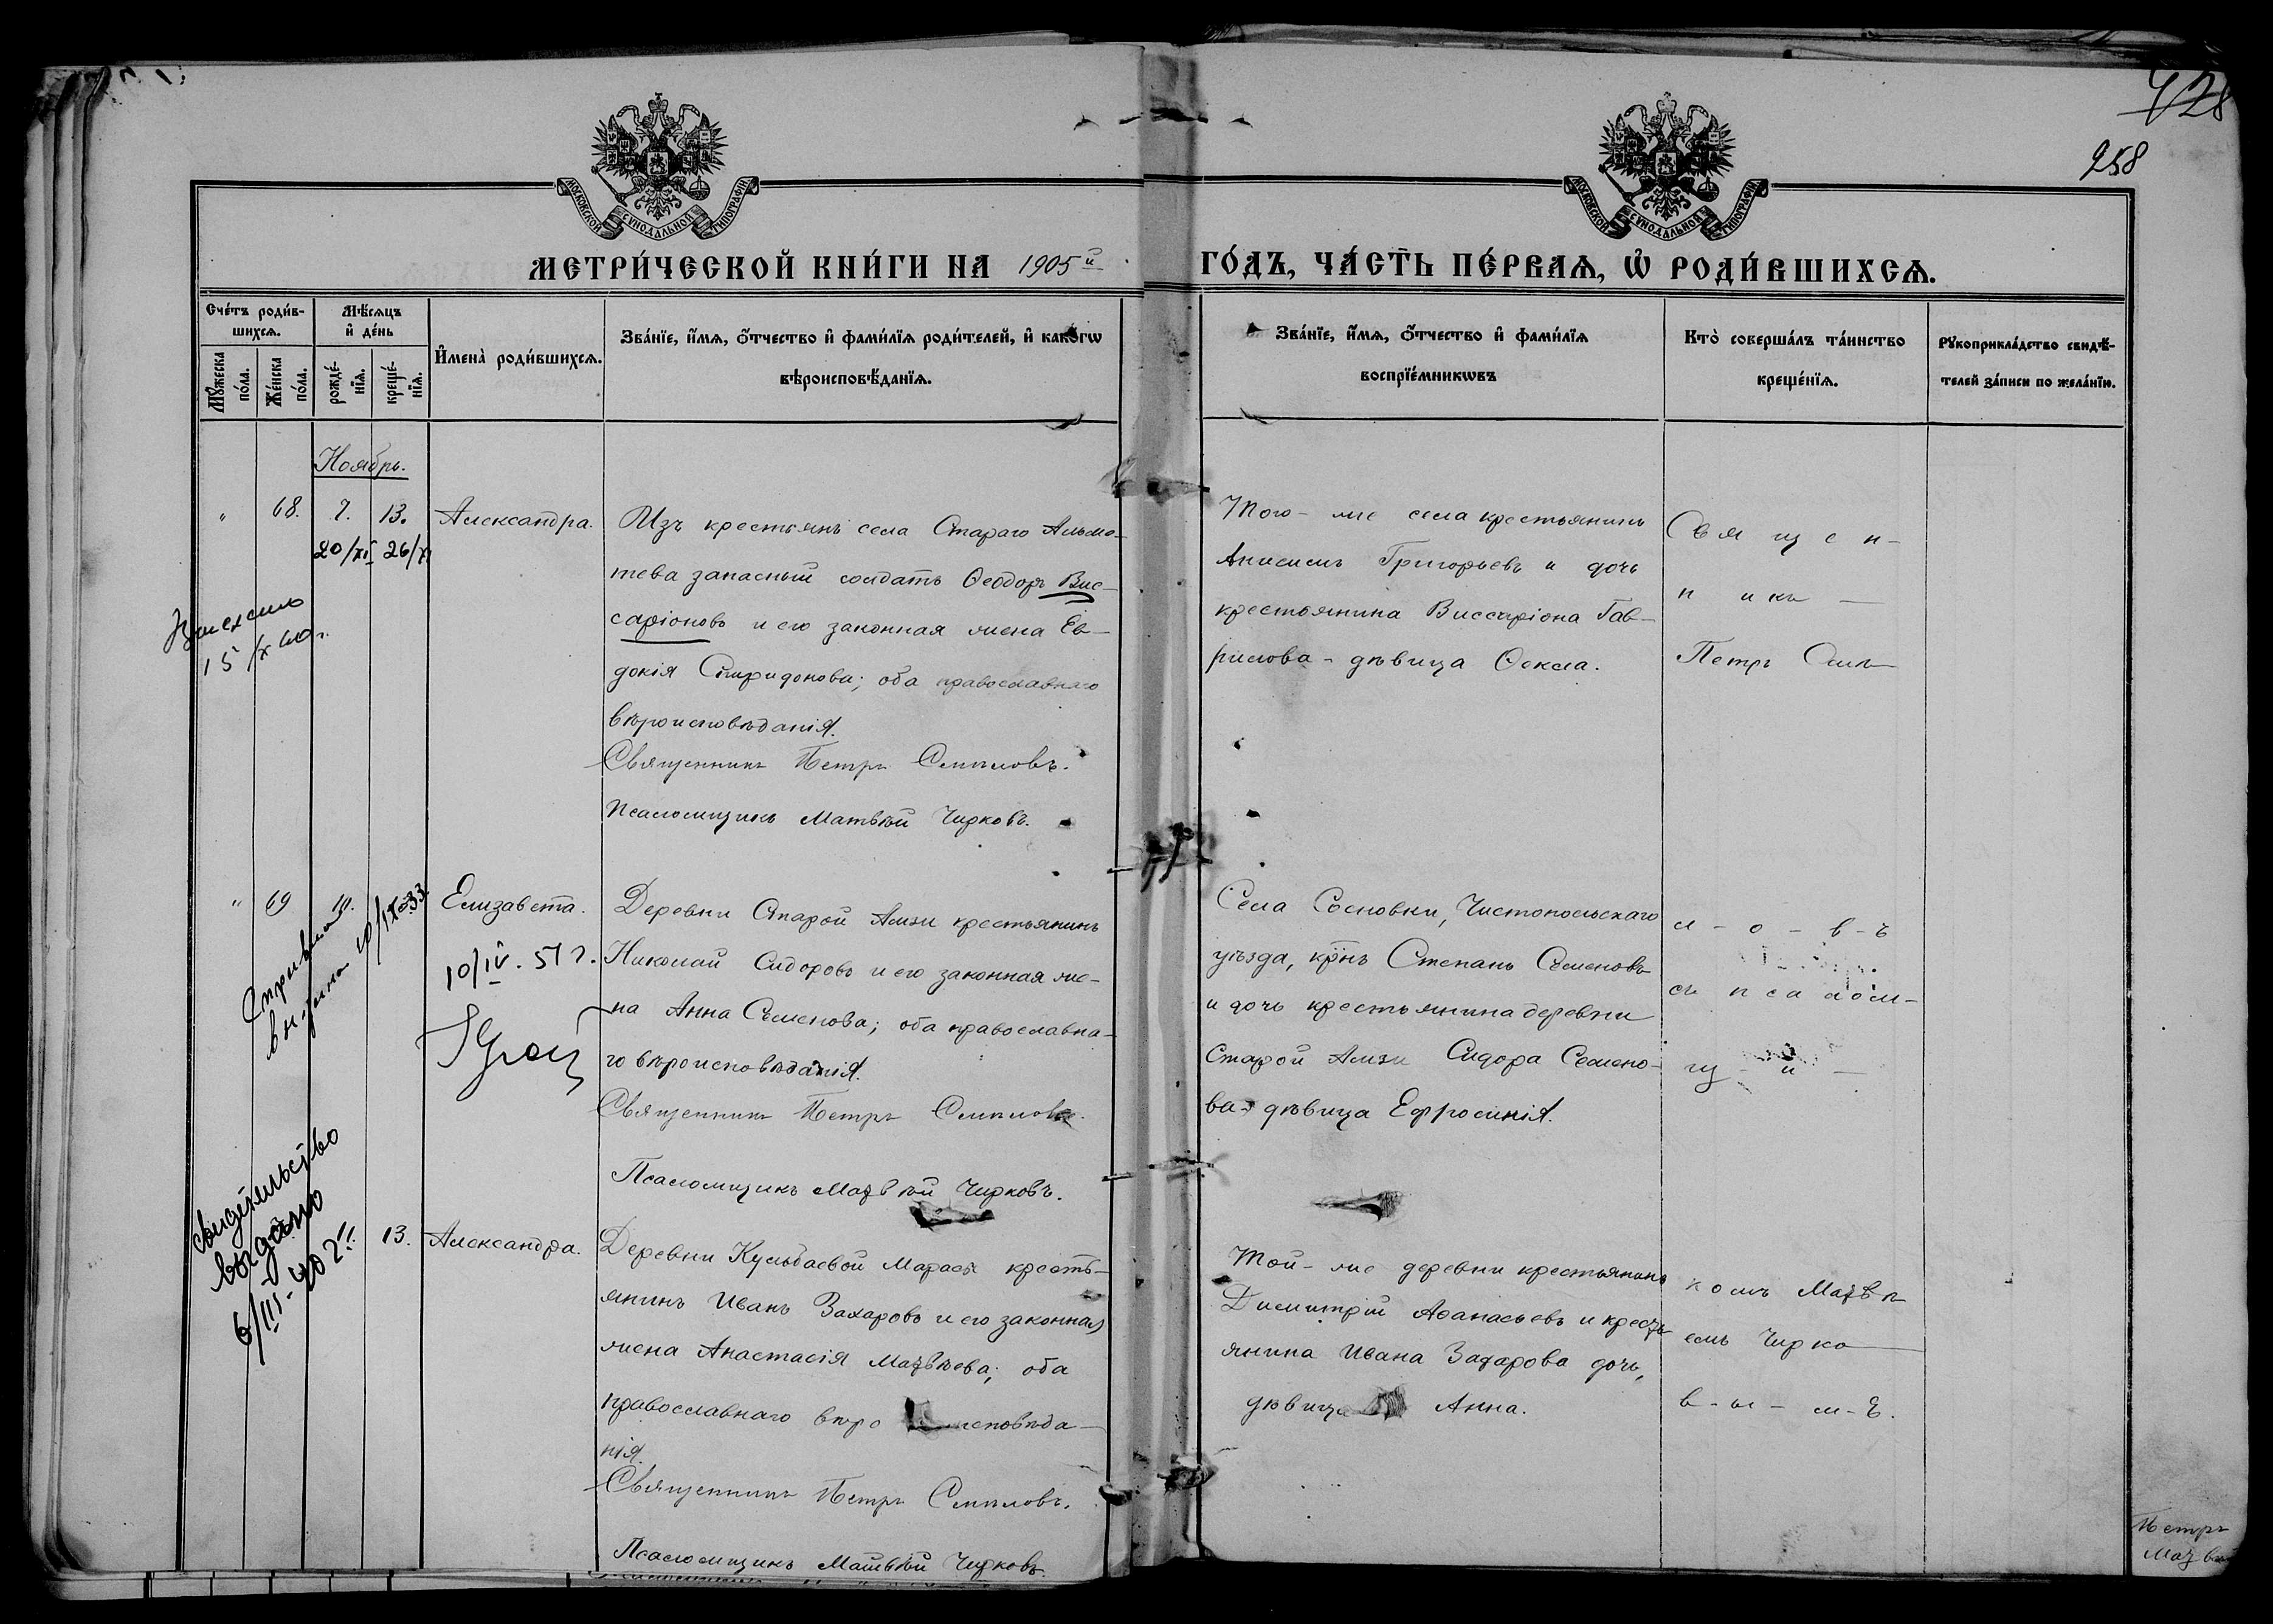 428
258
МОСКОВСКОЙ СУНОДАЛЬНОЙ ТИПОГРАФІИ
МОСКОВСКОЙ СУНОДАЛЬНОЙ ТИПОГРАФІИ
МЕТРИ́ЧЕСКОЙ КНИ́ГИ НА 1905й
ГО́ДЪ, ЧА́СТЬ ПЕ́РВАѦ, Ѡ҆ РОДИ́ВШИХСѦ.
Сче́тъ роди́в-
шихсѧ.
Мꙋ́жеска по́ла.
Же́нска по́ла.
Мѣ́сѧцъ
и҆ де́нь
рожде́-
нїѧ.
креще́-
нїѧ.
И҆мена̀ роди́вшихсѧ.
Зва́нїе, и҆́мѧ, ѻ҆́тчество и҆ фами́лїѧ роди́телей, и҆ како́гѡ
вѣроисповѣ́данїѧ.
Зва́нїе, и҆́мѧ, ѻ҆́тчество и҆ фами́лїѧ
воспрїе́мникѡвъ
Кто̀ соверша́лъ та́инство
креще́нїѧ.
Рꙋкоприкла́дство свидѣ́-
телей за́писи по жела́нїю.
Ноябрь.
" 68. 7. 13. Александра.
20/XI 26/XI
15/X 40г.
Изъ крестьянъ села Стараго Альме-
тева запасный солдатъ Ѳеодоръ Вис-
саріоновъ и его законная жена Ев-
докія Спиридонова; оба православнаго
вѣроисповѣданія.
Священникъ Петръ Смѣловъ.
Псаломщикъ Матвѣй Чирковъ.
Того-же села крестьянинъ
Анисимъ Григорьевъ и дочь
крестьянина Виссаріона Гав-
рилова - дѣвица Ѳекла.
Свящeн-
никъ
Петръ Смѣ
" 69 Елизавета.
10/IV. 51 г.
Деревни Старой Амзи крестьянинъ
Николай Сидоровъ и его законная же-
на Анна Семенова; оба православна-
го вѣроисповѣданія.
Священникъ Петръ Смѣловъ.
Псаломщикъ Матвѣй Чирковъ.
Села Сосновки, Чистопольскаго
уѣзда, кр̃нъ Степанъ Семеновъ
и дочь крестьянина деревни
Старой Амзи Сидора Семено-
ва - дѣвица Ефросинія.
л - о - в - ъ
съ псалом-
щ - и -
свидетельство
выдано
6/III-40 г.
13. Александра.
Деревни Кульбаевой Марасы кресть-
янинъ Иванъ Захаровъ и его законная
жена Анастасія Матвѣева; оба
православнаго вѣроисповѣда-
нія.
Священникъ Петръ Смѣловъ.
Псаломщикъ Матвѣй Чирковъ.
Той-же деревни крестьянинъ
Димитрій Аѳанасьевъ и кресть-
янина Ивана Захарова дочь,
дѣвица Анна.
комъ Матвѣ
емъ Чирко
в-ы-м-ъ.
Петръ